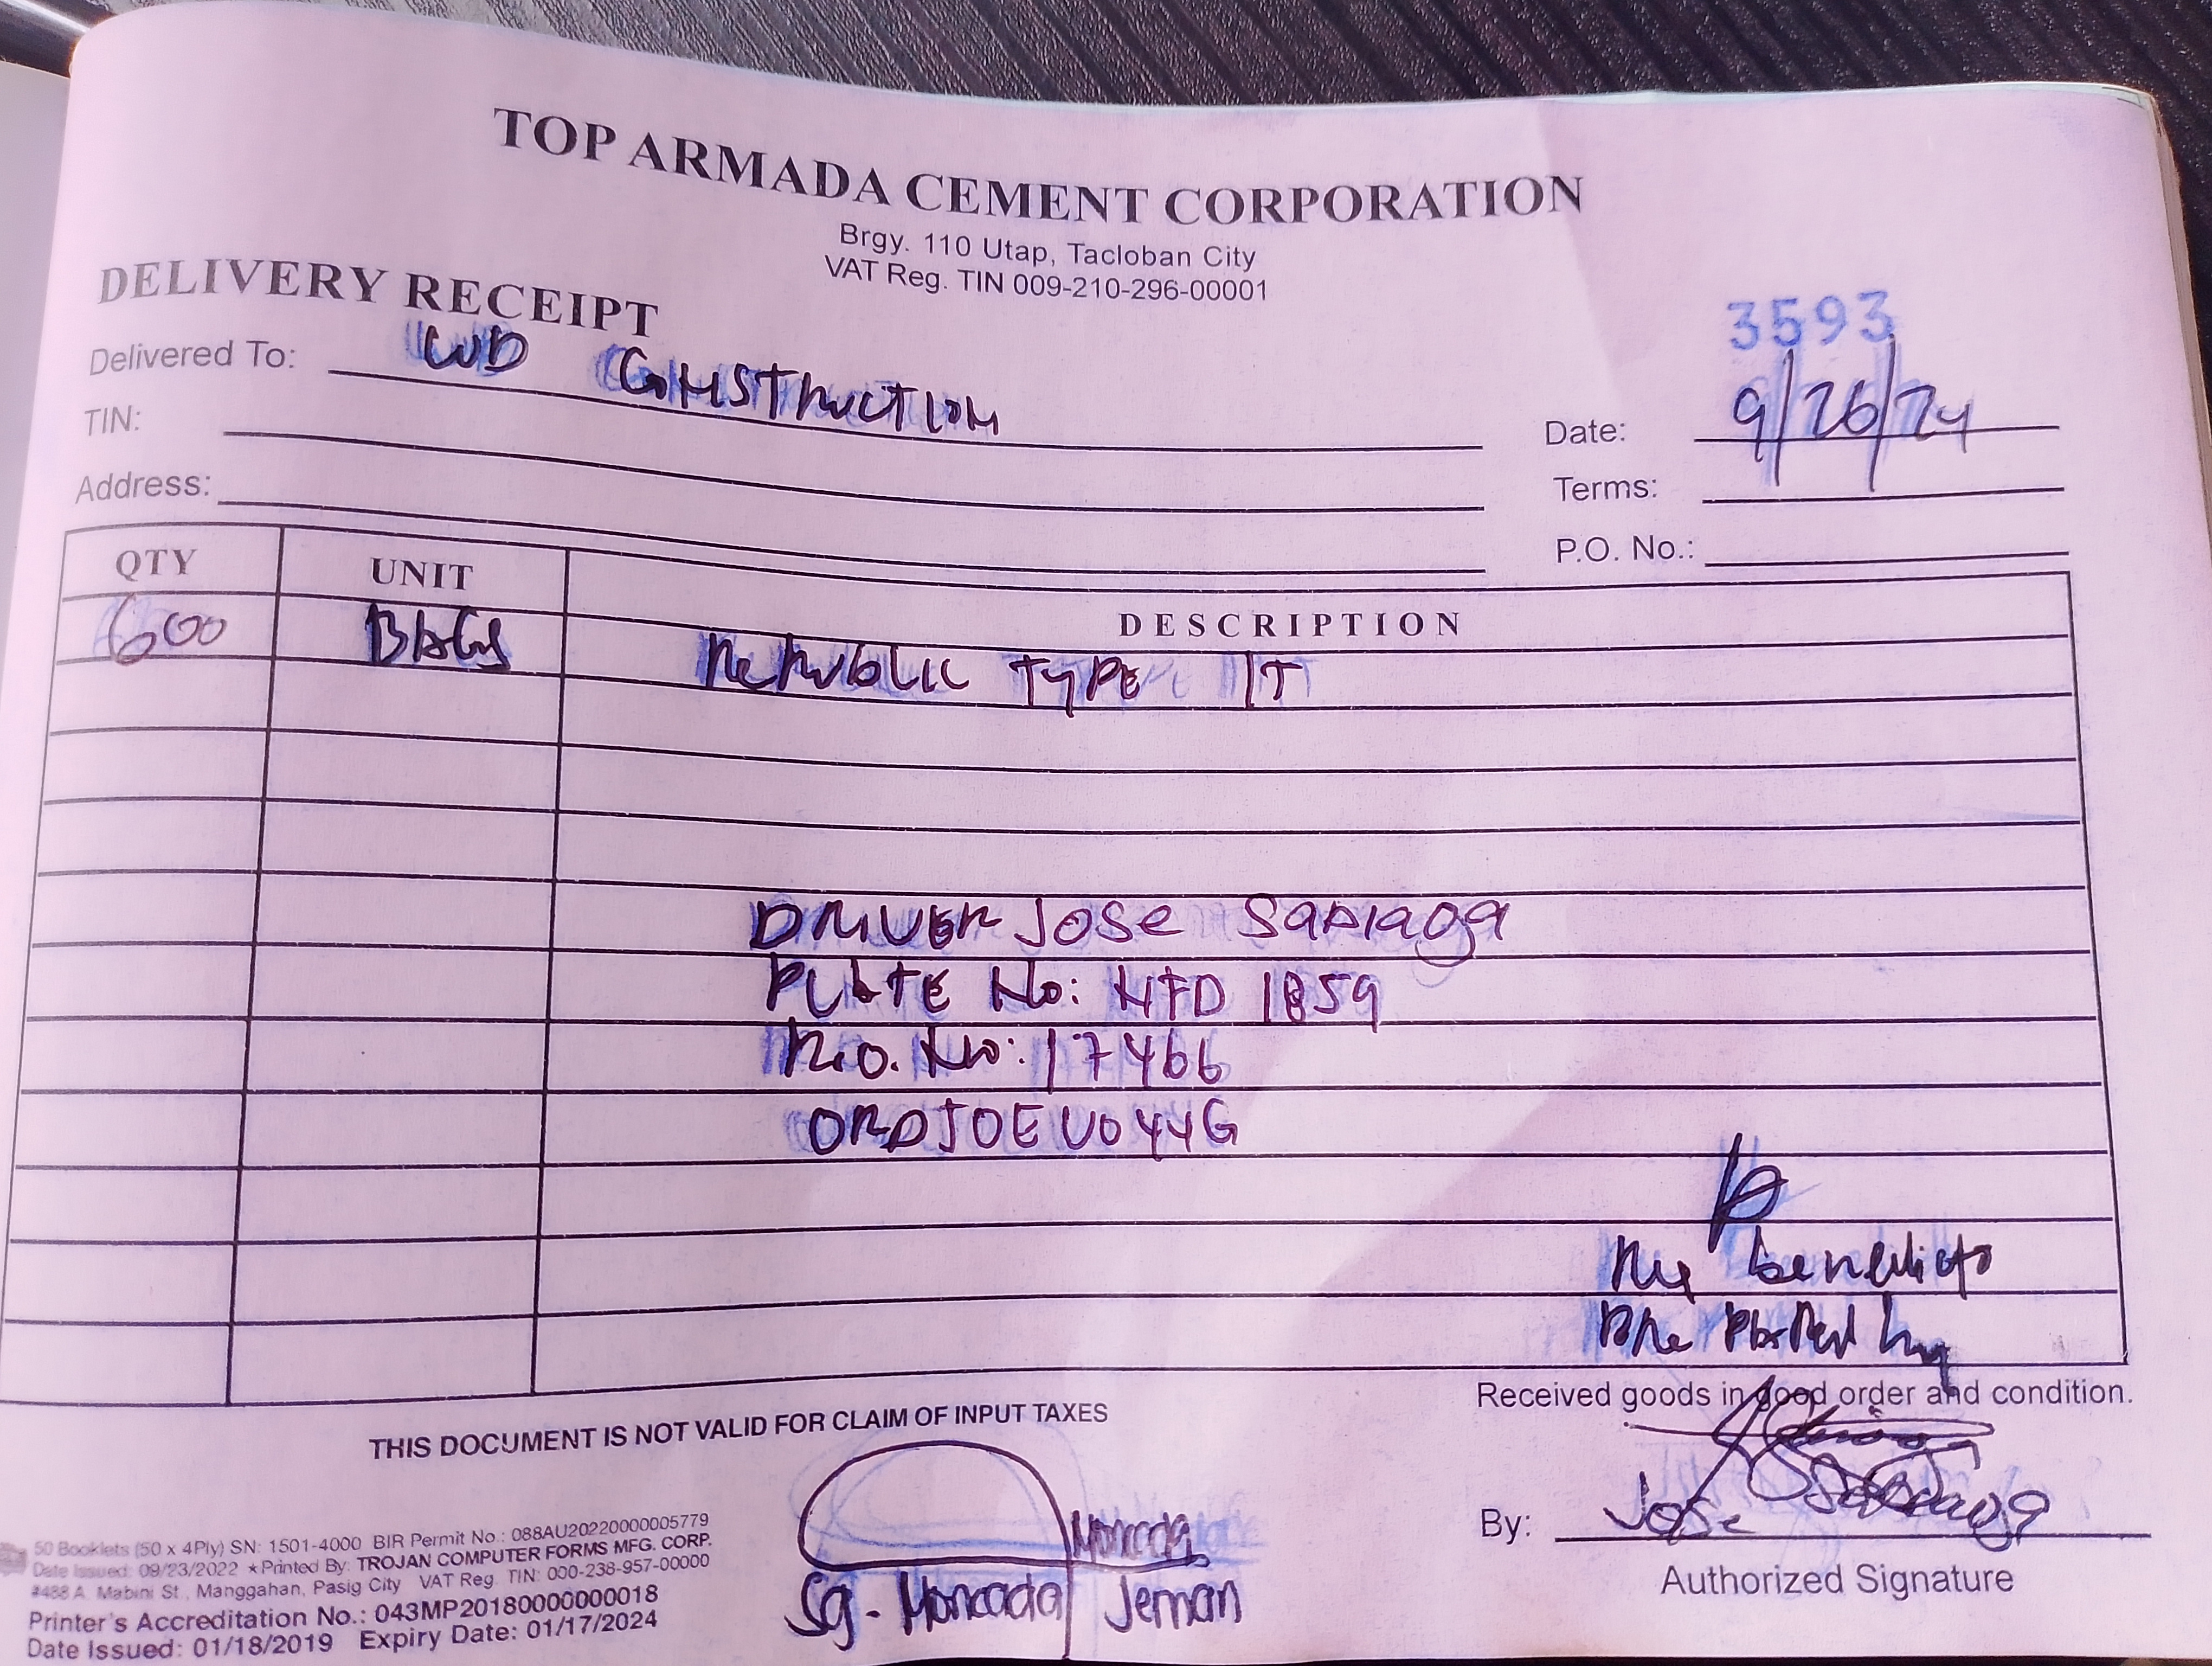 TOP ARMADA CEMENT CORPORATION
Brgy. 110 Utap, Tacloban City
VAT Reg. TIN 009-210-296-00001
DELIVERY RECEIPT
3593
Delivered To: CONSTRUCTION
Date: 9/26/24
TIN:
Terms:
Address:
P.O. No.:
QTY UNIT DESCRIPTION
600 BAGS REPUBLIC TYPE 1T
DRIVER JOSE SADIAGA
PLATE No: NFD 1859
R.O. No: 17466
Benedicto
Received goods in good order and condition.
THIS DOCUMENT IS NOT VALID FOR CLAIM OF INPUT TAXES
By: Jose
Authorized Signature
Moncada
Sg. Moncada Jeman
50 Booklets (50 x 4Ply) SN: 1501-4000 BIR Permit No.: 088AU20220000005779
Date Issued: 09/23/2022 ★Printed By: TROJAN COMPUTER FORMS MFG. CORP.
#488 A. Mabini St., Manggahan, Pasig City VAT Reg. TIN: 000-238-957-00000
Printer's Accreditation No.: 043MP20180000000018
Date Issued: 01/18/2019 Expiry Date: 01/17/2024